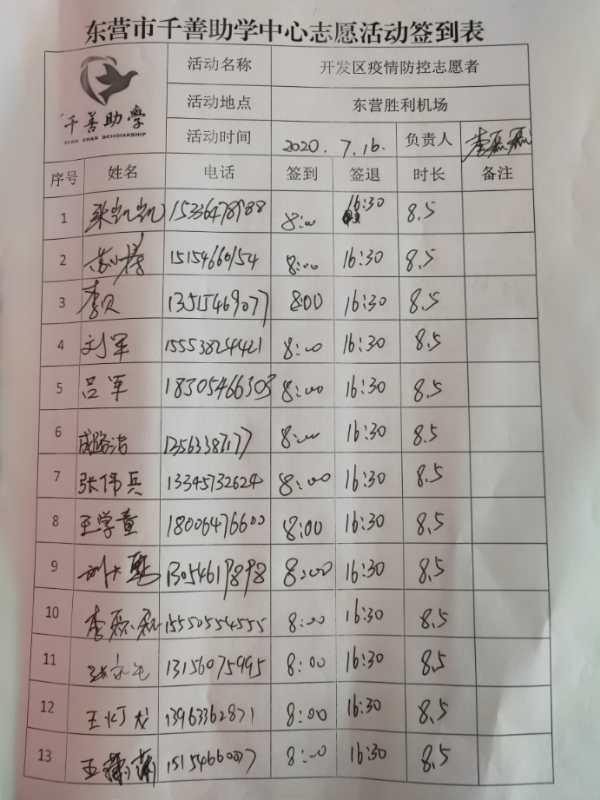 东营市千善助学中心志愿活动签到表
千善助學
活动名称 开发区疫情防控志愿者
活动地点 东营胜利机场
活动时间 2020.7.16. 负责人 李磊磊
序号 姓名 电话 签到 签退 时长 备注
1 张凯凯 15336478988 8:00 16:30 8.5
2 15154660154 8:00 16:30 8.5
3 李贝 13515469077 8:00 16:30 8.5
4 刘军 15553824421 8:00 16:30 8.5
5 吕军 18305466303 8:00 16:30 8.5
6 8:00 16:30 8.5
7 张伟兵 13345732624 8:00 16:30 8.5
8 王学童 18006476600 8:00 16:30 8.5
9 13054619898 8:00 16:30 8.5
10 李磊磊 15550554555 8:00 16:30 8.5
11 13156075995 8:00 16:30 8.5
12 王灯龙 13963362871 8:00 16:30 8.5
13 15154660007 8:00 16:30 8.5